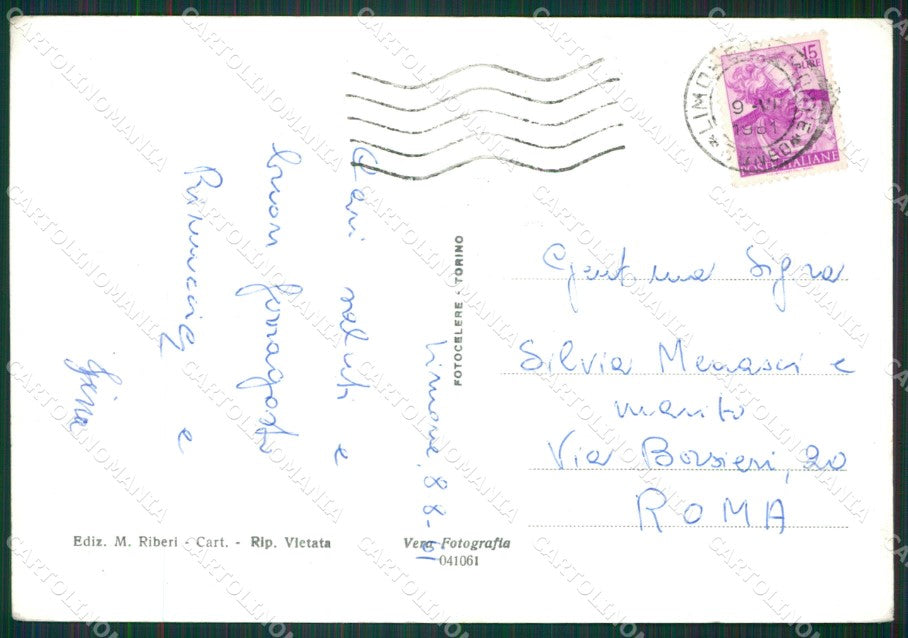 Limone, 8-8-61
Cari saluti e
buon ferragosto
e
Gina
Gent.ma Sig.ra
Silvia Menasci e
marito
Via Borsieri, 20
ROMA
FOTOCELERE - TORINO
Ediz. M. Riberi - Cart. - Rip. Vietata
Vera Fotografia
041061
15
LIRE
POSTE ITALIANE
LIMONE
9
1961
CARTOLINOMANIA